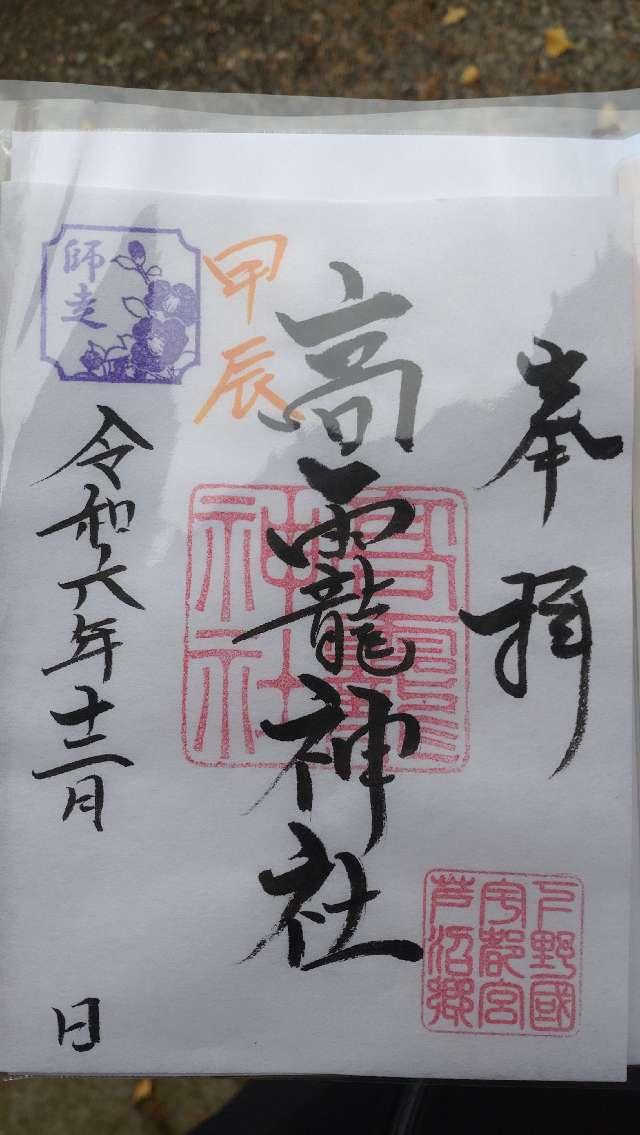 奉拝
下野國
宇都宮
芦沼郷
高龗神社
高龗
神社
甲辰
師走
令和六年十二月 日